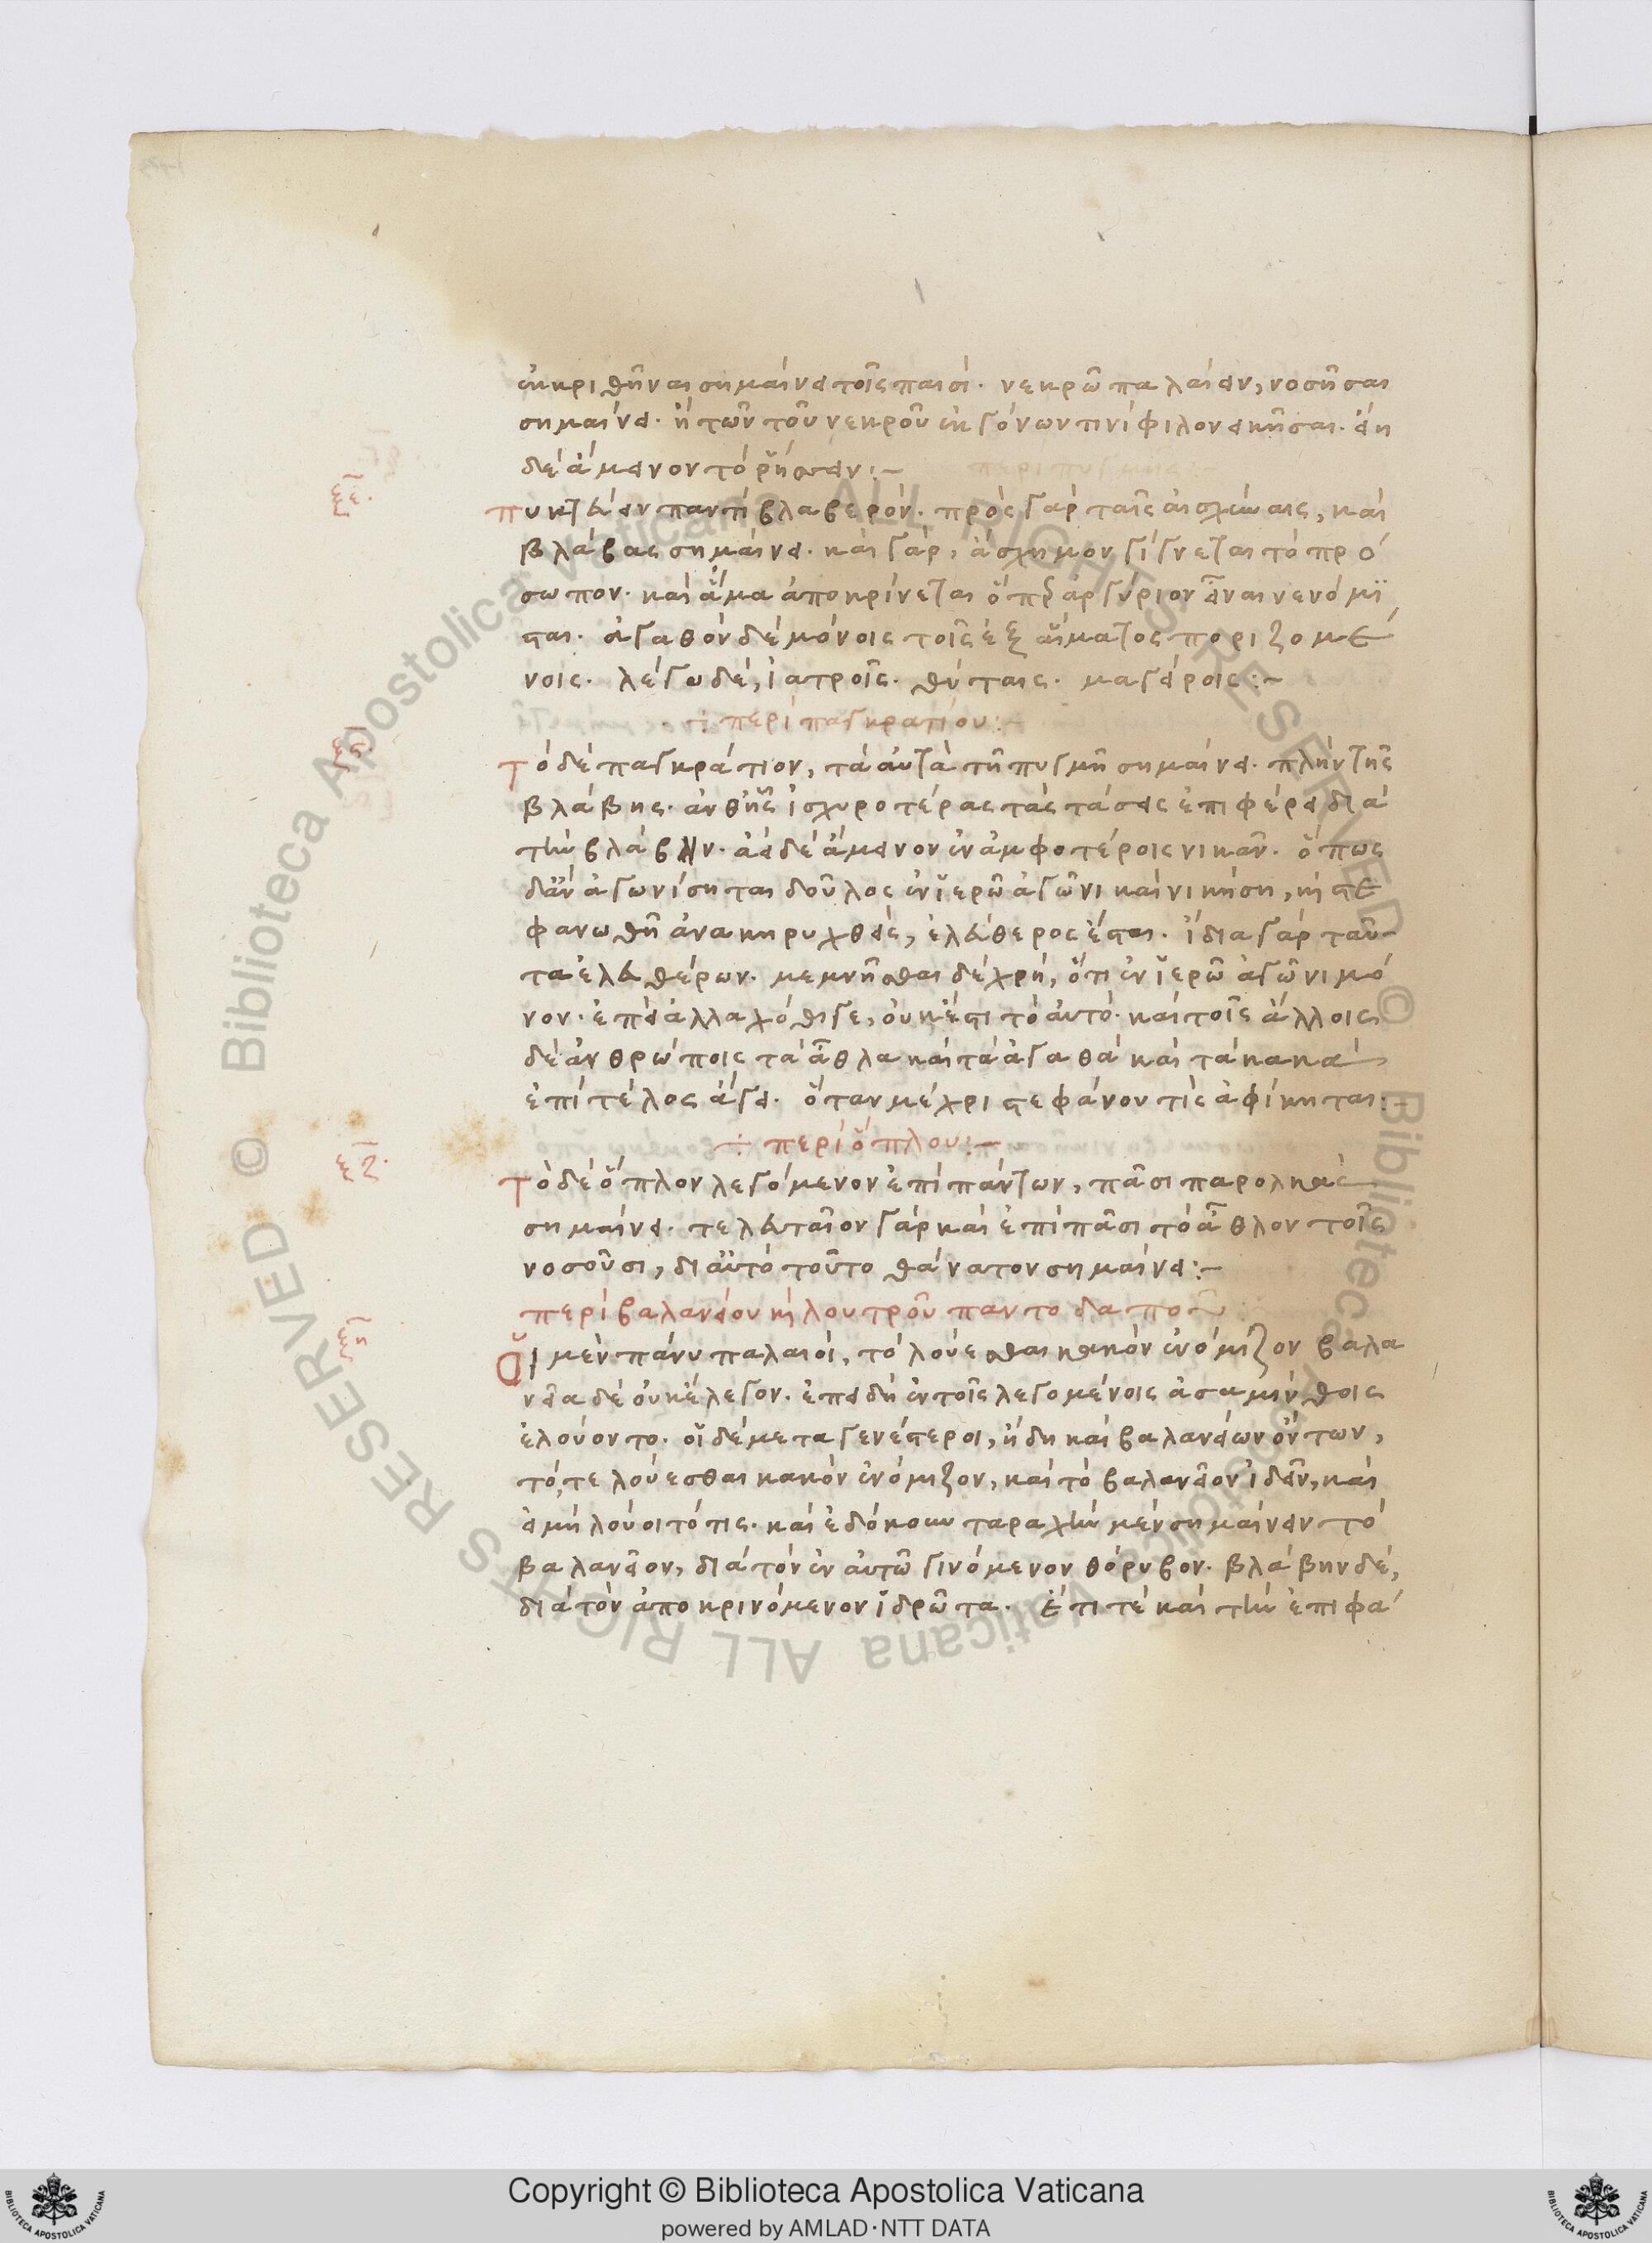 ἐκκριθῆναι σημαίνει τοῖς παισί. νεκρῶ παλαίειν, νοσῆσαι
σημαίνει. ἢ τῶν τοῦ νεκροῦ ἐκγόνων τινὶ φιλονεικῆσαι. ἀεὶ
δὲ ἄμεινον τὸ ῥήσσειν:-
περὶ πυγμῆς:-
ξε.
πυκτεύειν παντὶ βλαβερόν. πρὸς γὰρ ταῖς αἰσχύναις, καὶ
βλάβας σημαίνει. καὶ γὰρ, ἄσχημον γίγνεται τὸ πρό
σωπον. καὶ αἷμα ἀποκρίνεται ὅπερ ἀργύριον εἶναι νενόμι
σται. ἀγαθὸν δὲ μόνοις τοῖς ἐξ αἵματος ποριζομέ
νοις. λέγω δὲ, ἰατροῖς. θύταις. μαγείροις:-
περὶ παγκρατίου:-
ξϛ.
τὸ δὲ παγκράτιον, τὰ αὐτὰ τῆ πυγμῆ σημαίνει. πλὴν τῆς
βλάβης. ἀνθ' ἧς ἰσχυροτέρας τὰς στάσεις ἐπιφέρει διὰ
τὴν βλάβην. ἀεὶ δὲ ἄμεινον ἐν ἀμφοτέροις νικᾶν. ὅπως
δἂν ἀγωνίσηται δοῦλος ἐν ἱερῶ ἀγῶνι καὶ νικήση, κὶ στε
φανωθῆ ἀνακηρυχθεὶς, ἐλεύθερος ἔσται. ἴδια γὰρ ταῦ-
τα ἐλευθέρων. μεμνῆσθαι δὲ χρὴ, ὅτι ἐν ἱερῶ ἀγῶνι μό
νον. ἐπεὶ ἀλλαχόθι γε, οὐκ ἔστι τὸ αὐτό. καὶ τοῖς ἄλλοις
δὲ ἀνθρώποις τὰ ἆθλα καὶ τὰ ἀγαθὰ καὶ τὰ κακὰ
ἐπὶ τέλος ἄγει. ὅταν μέχρι στεφάνου τὶς ἀφίκηται:
÷ περὶ ὅπλου:-
ξζ.
τὸ δὲ ὅπλον λεγόμενον ἐπὶ πάντων, πᾶσι παρολκὰς
σημαίνει. τελευταῖον γὰρ καὶ ἐπὶ πᾶσι τὸ ἆθλον τοῖς
νοσοῦσι, δι αὐτὸ τοῦτο θάνατον σημαίνει:-
περὶ βαλανείου κὶ λουτροῦ παντοδαποῦ
ξη
Οἱ μὲν πάνυ παλαιοὶ, τὸ λούεσθαι κακὸν ἐνόμιζον βαλα
νεῖα δὲ οὐκ ἔλεγον. ἐπειδὴ ἐν τοῖς λεγομένοις ἀσαμίνθοις
ἐλούοντο. οἱ δὲ μεταγενέστεροι, ἤδη καὶ βαλανείων ὄντων,
τό, τε λούεσθαι κακὸν ἐνόμιζον, καὶ τὸ βαλανεῖον ἰδεῖν, καὶ
εἰ μὴ λούοιτό τις. καὶ ἐδόκουν ταραχὴν μὲν σημαίνειν τὸ
βαλανεῖον, διὰ τὸν ἐν αὐτῶ γινόμενον θόρυβον. βλάβην δὲ,
διὰ τὸν ἀποκρινόμενον ἱδρῶτα. ἔτι τὲ καὶ τὴν ἐπιφά
Copyright © Biblioteca Apostolica Vaticana
powered by AMLAD·NTT DATA
© Biblioteca Apostolica Vaticana ALL RIGHTS RESERVED
© Biblioteca Apostolica Vaticana ALL RIGHTS RESERVED
BIBLIOTECA APOSTOLICA VATICANA
BIBLIOTECA APOSTOLICA VATICANA